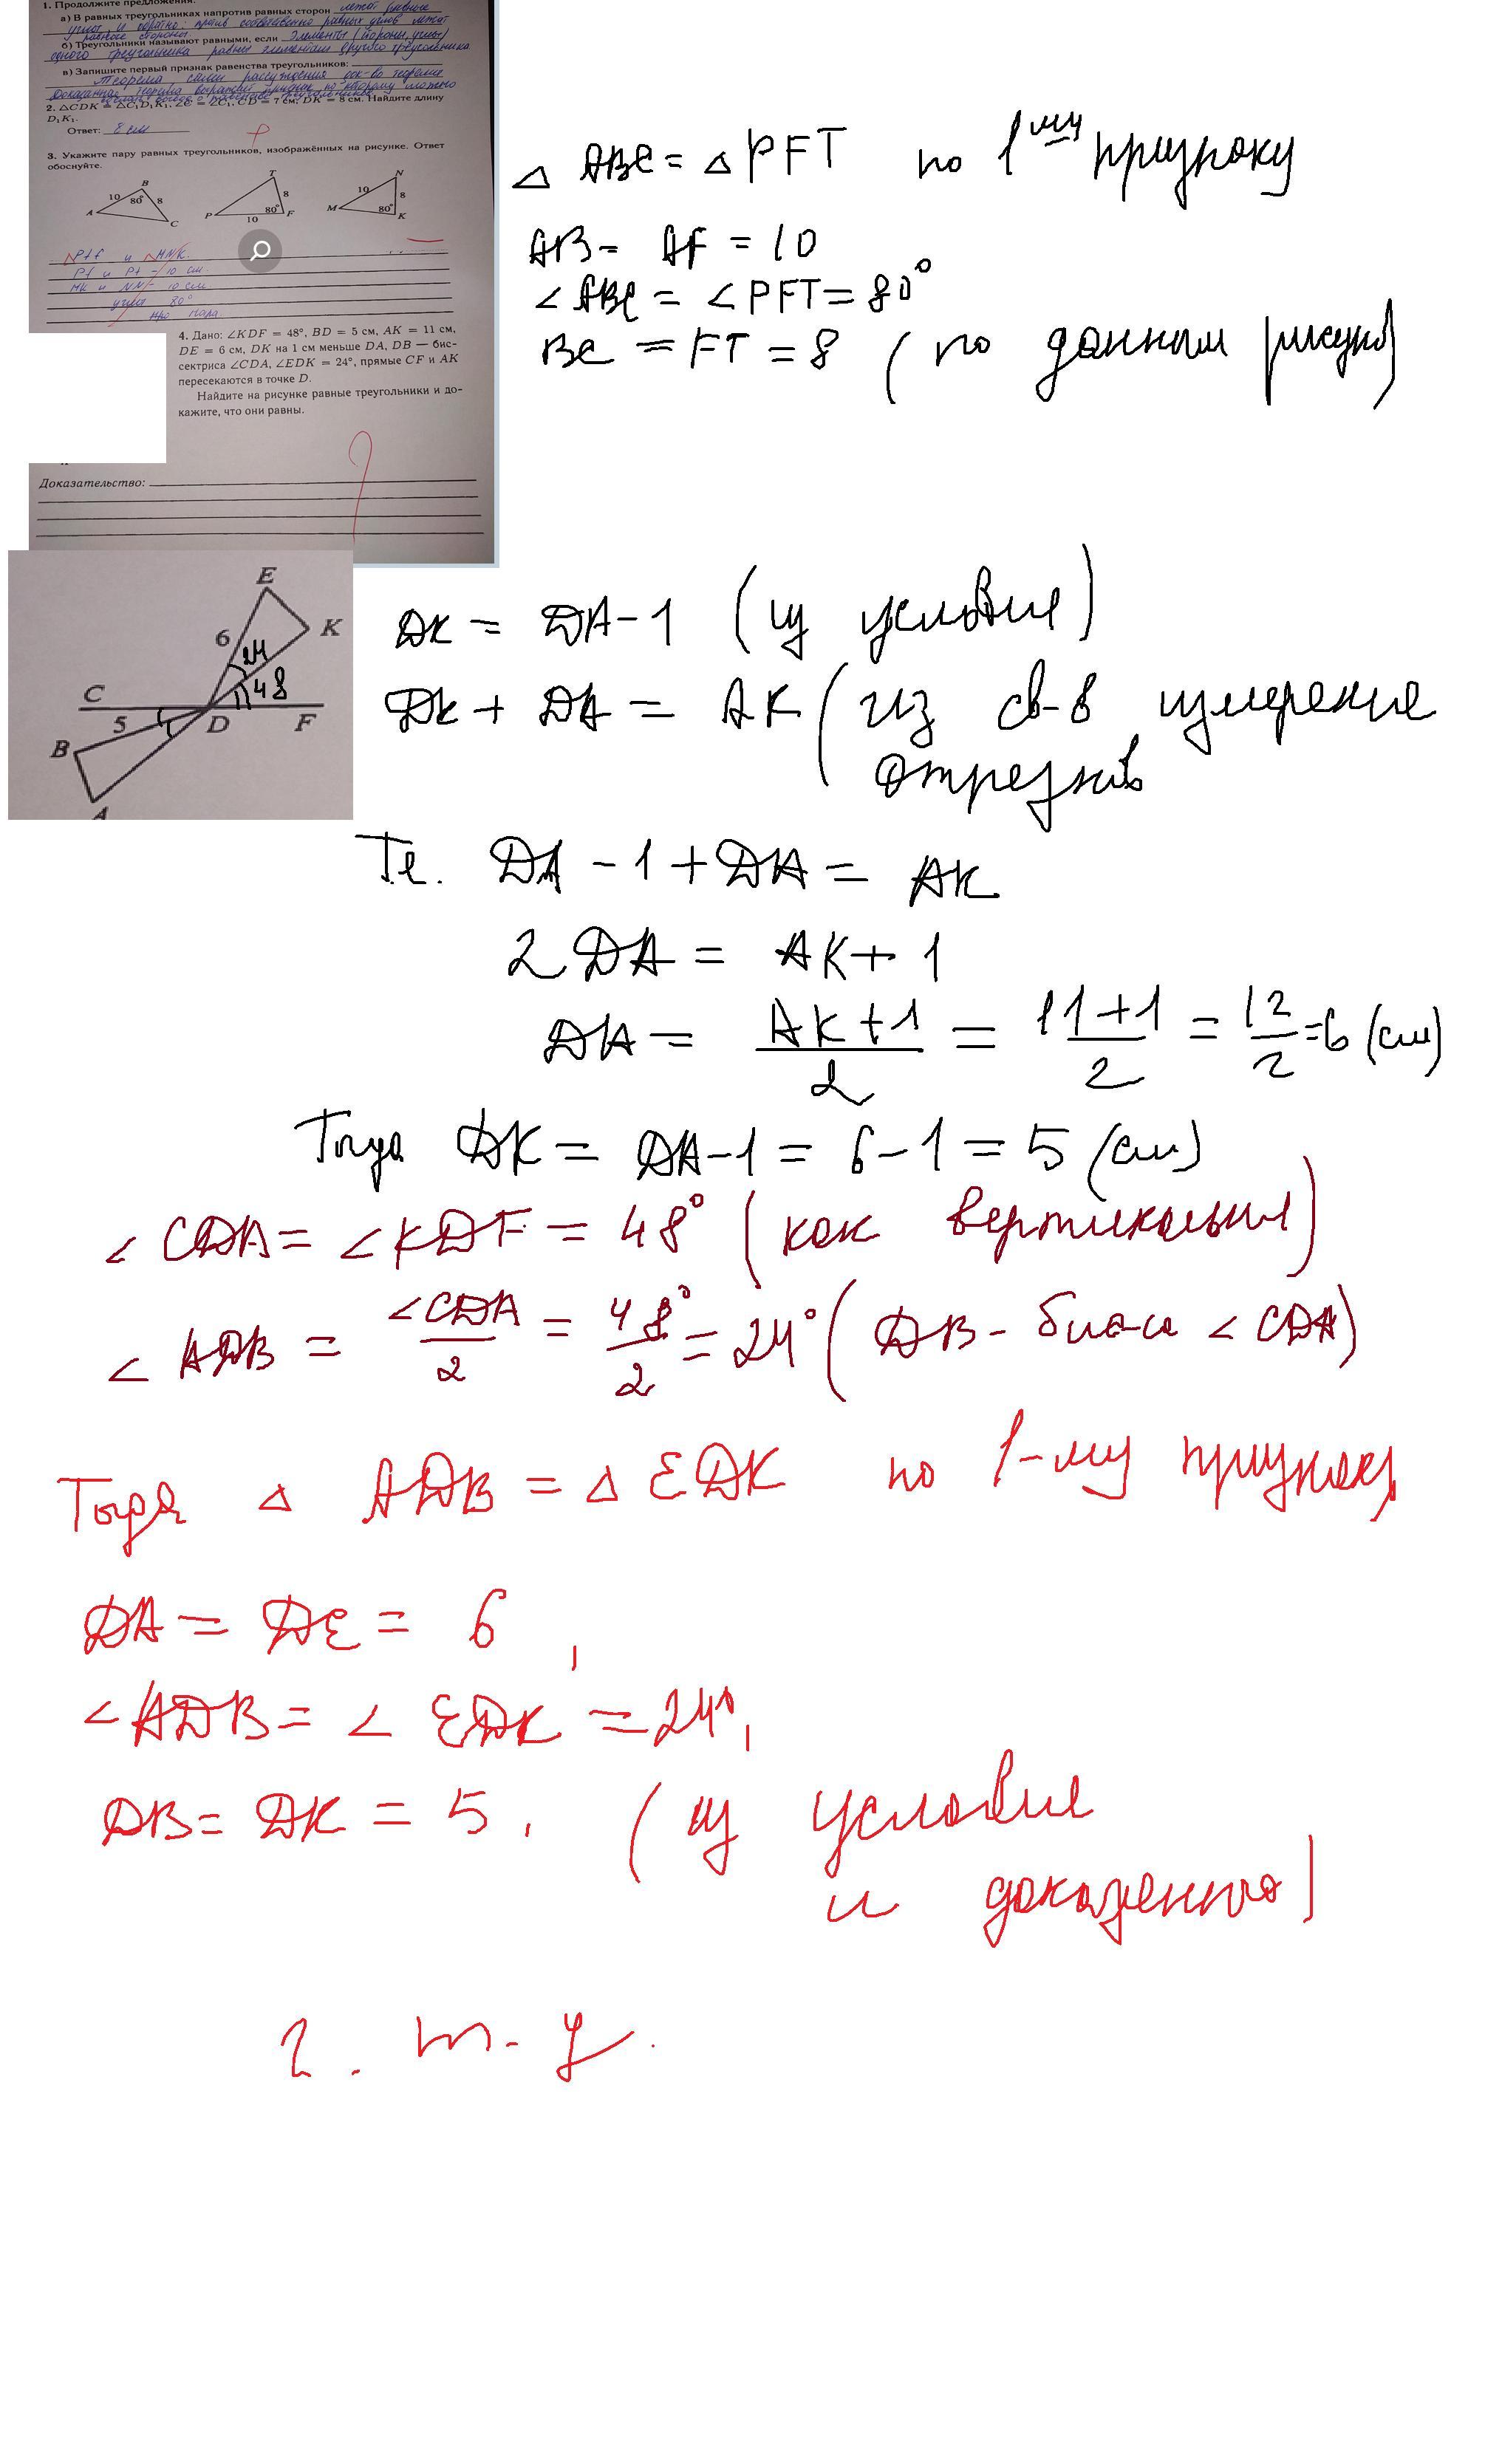 1. Продолжите предложения.
а) В равных треугольниках напротив равных сторон лежат равные
углы и обратно: против соответственно равных углов лежат
равные стороны
б) Треугольники называют равными, если элементы (стороны, углы)
одного треугольника равны элементам другого треугольника
в) Запишите первый признак равенства треугольников:
Теорема рассуждения док-во теоремы
Доказанная теорема выражает признак по которому можно
2. △CDK = △C₁D₁K₁, ∠C = ∠C₁, CD = 7 см, DK = 8 см. Найдите длину
D₁K₁.
Ответ: 8 см
3. Укажите пару равных треугольников, изображённых на рисунке. Ответ
обоснуйте.
B
10 80° 8
A
C
T
8
80°
P 10 F
N
10
8
M 80° K
△Ptf и △MNK.
Pf и Pt - 10 см
MK и NN - 10 см
угол 80°
пара
4. Дано: ∠KDF = 48°, BD = 5 см, AK = 11 см,
DE = 6 см, DK на 1 см меньше DA, DB — бис-
сектриса ∠CDA, ∠EDK = 24°, прямые CF и AK
пересекаются в точке D.
Найдите на рисунке равные треугольники и до-
кажите, что они равны.
Доказательство:
△ ABC = △ PFT по 1му признаку
AB = AF = 10
∠ ABC = ∠ PFT = 80°
BC = FT = 8 (по данным рисунка)
E
6
24
K
48
C
5
D
F
B
A
DK = DA - 1 (из условия)
DK + DA = AK (из св-в измерения
отрезков
Те. DA - 1 + DA = AK
2 DA = AK + 1
DA = AK + 1 / 2 = 11 + 1 / 2 = 12 / 2 = 6 (см)
Тогда DK = DA - 1 = 6 - 1 = 5 (см)
∠ CDA = ∠ KDF = 48° (как вертикальные)
∠ ADB = ∠CDA / 2 = 48° / 2 = 24° (DB - бис-са ∠ CDA)
Тогда △ ADB = △ EDK по 1-му признаку
DA = DE = 6 ,
∠ ADB = ∠ EDK = 24°,
DB = DK = 5 , (из условия
и доказанного)
ч. т. д.